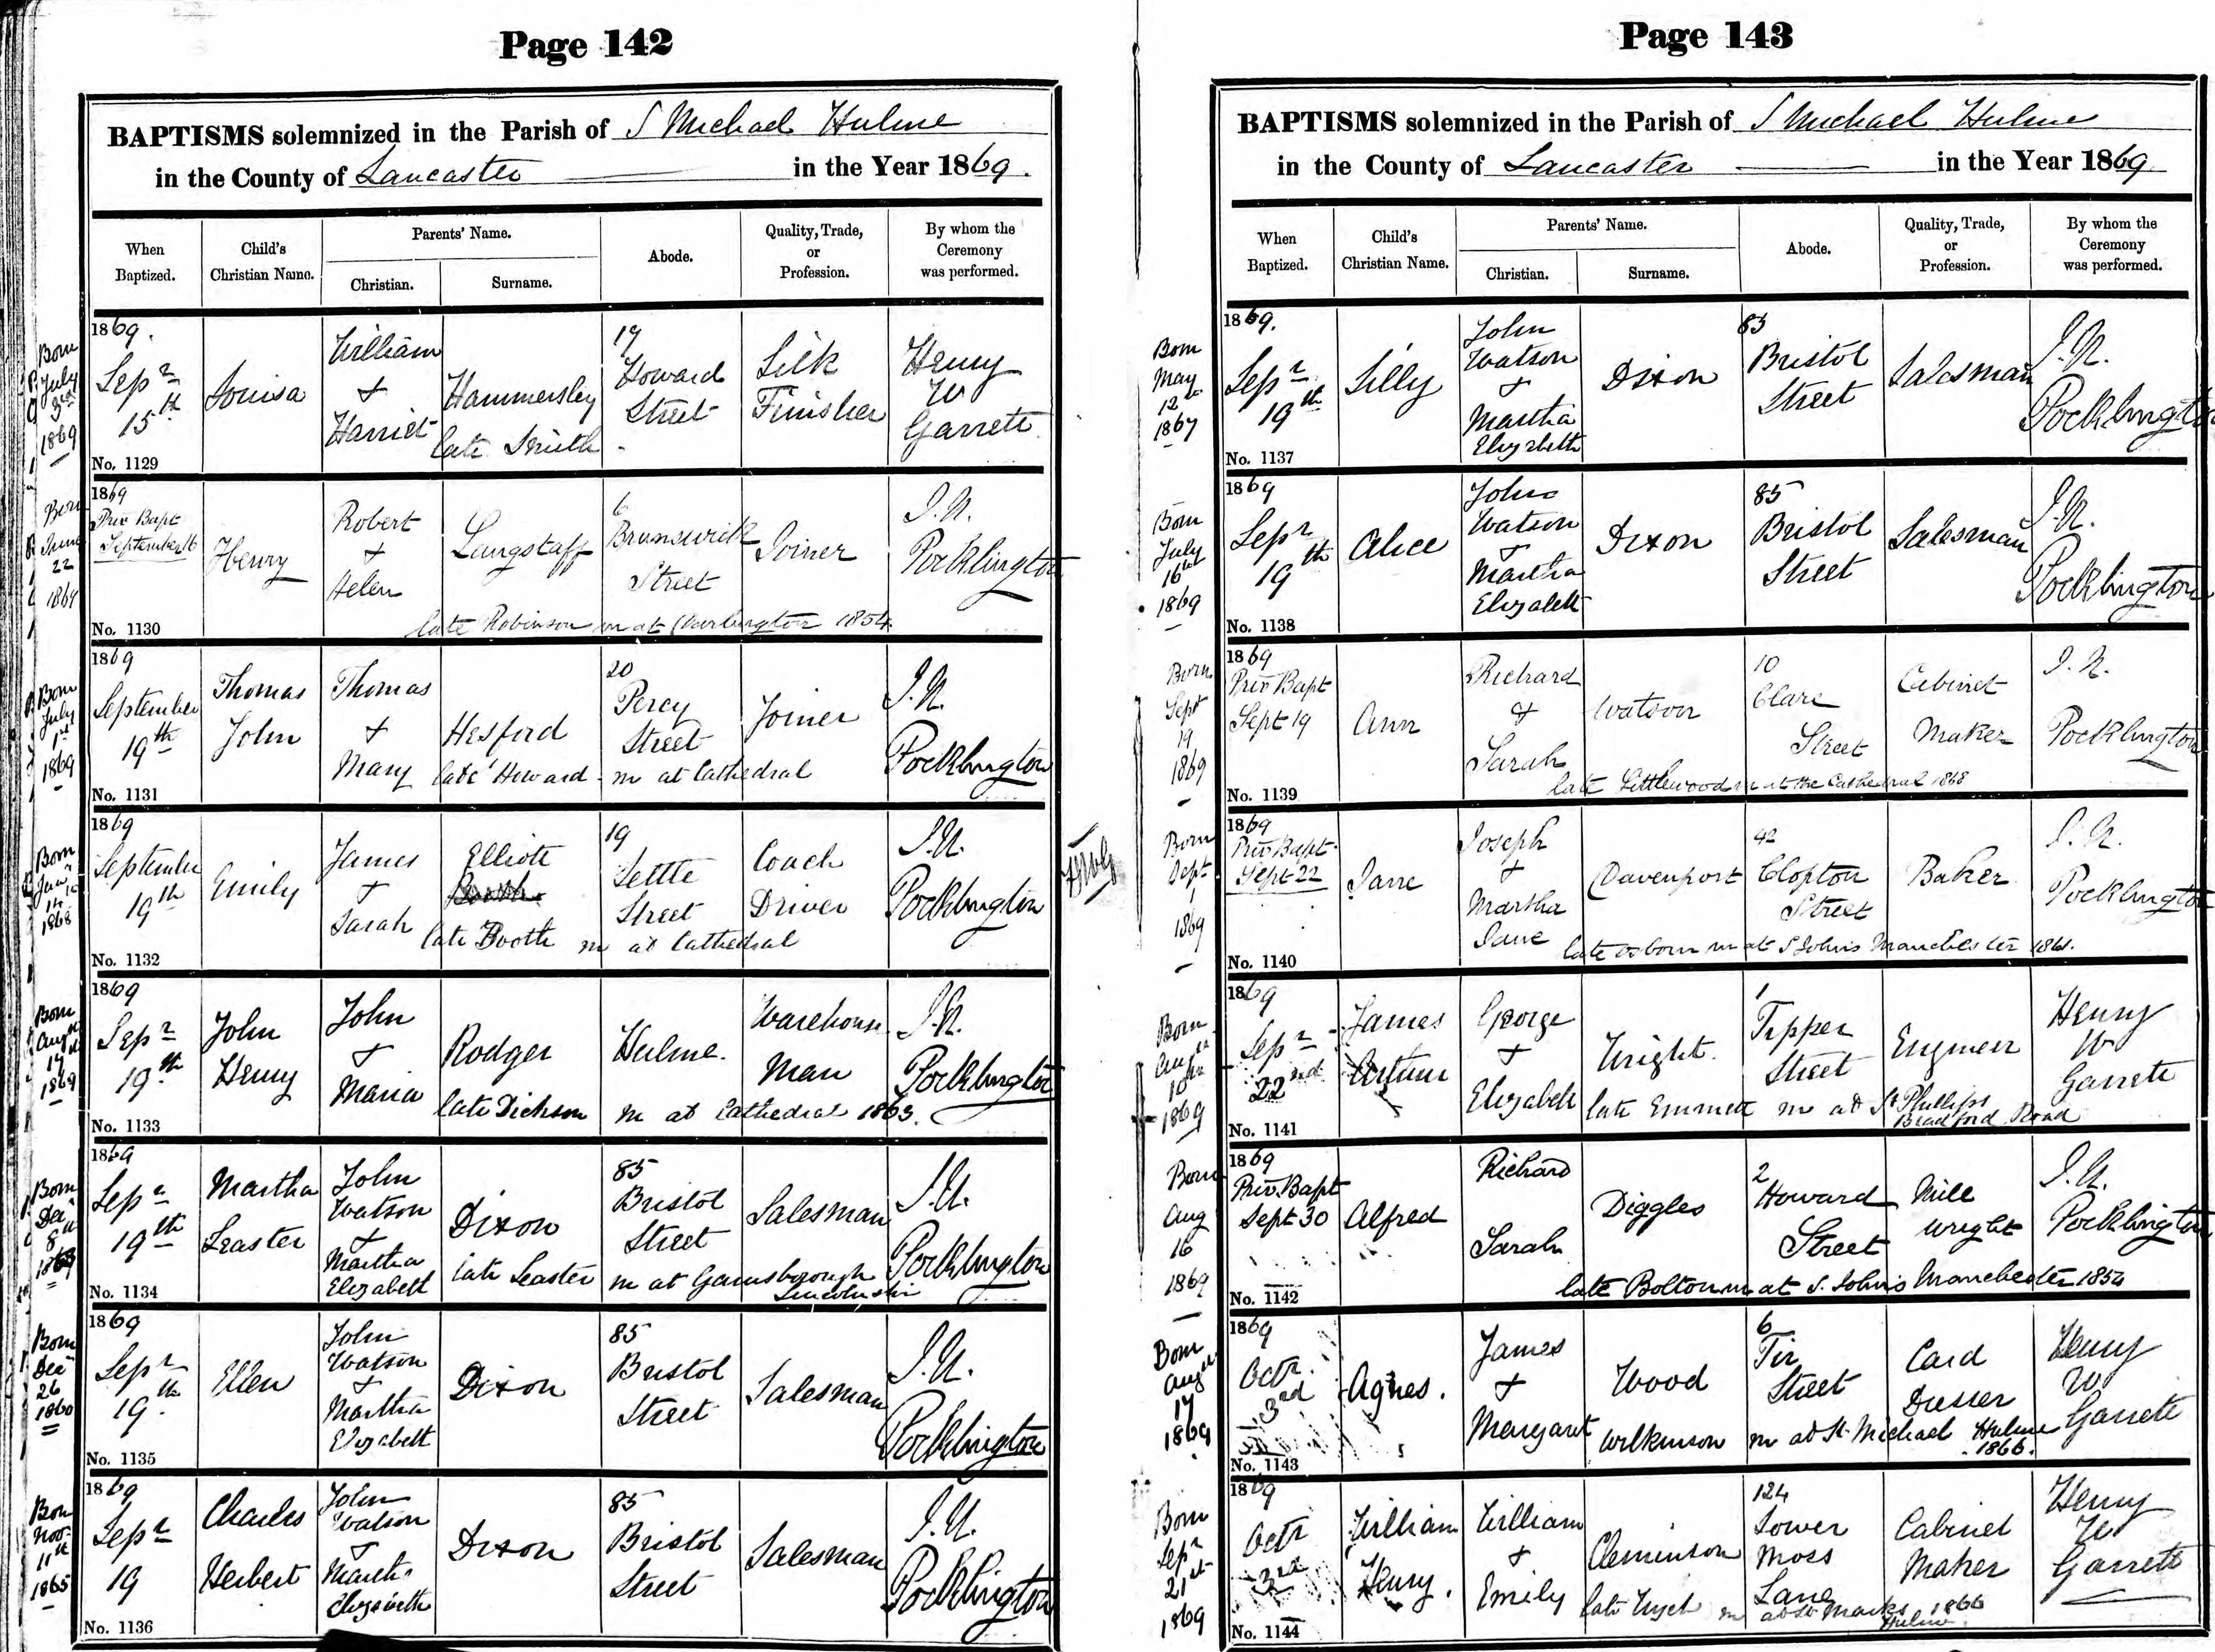 Page 142
BAPTISMS solemnized in the Parish of S Michael Hulme
in the County of Lancaster in the Year 1869.
When Baptized.
Child's Christian Name.
Parents' Name.
Christian.
Surname.
Abode.
Quality, Trade, or Profession.
By whom the Ceremony was performed.
Born July 3rd 1869
1869.
Sepr 15th
Louisa
William + Harriet
Hammersley
late Smith
17 Howard Street
Silk Finisher
Henry W Garrett
No. 1129
Born June 22
1869
Priv Bapt September 16
Henry
Robert + Helen
Langstaff
6 Brunswick Street
Joiner
J.N. Pocklington
late Robinson m at Darlington 1854
No. 1130
Born July 1st 1869
1869
September 19th
Thomas John
Thomas + Mary
Hesford
20 Percy Street
Joiner
J.N. Pocklington
late Howard - m at Cathedral
No. 1131
Born 14 1868
1869
September 19th
Emily
James + Sarah
Elliott
19 Settle Street
Coach Driver
J.N. Pocklington
late Booth m at Cathedral
No. 1132
Born Augst 17th 1869
1869
Sepr 19th
John Henry
John + Maria
Rodger
Hulme.
Warehouse Man
J.N. Pocklington
late Dickson m at Cathedral 1863.
No. 1133
Born Decr 8th
1869
Sepr 19th
Martha Leaster
John Watson + Martha Elizabeth
Dixon
85 Bristol Street
Salesman
J.N. Pocklington
late Leaster m at Gainsborough
No. 1134
Born Decr 26 1860
1869
Sepr 19th
Ellen
John Watson + Martha Elizabeth
Dixon
85 Bristol Street
Salesman
J.N. Pocklington
No. 1135
Born Nov. 11th 1865
1869
Sepr 19
Charles Herbert
John Watson + Martha Elizabeth
Dixon
85 Bristol Street
Salesman
J.N. Pocklington
No. 1136
Page 143
BAPTISMS solemnized in the Parish of S Michael Hulme
in the County of Lancaster in the Year 1869.
When Baptized.
Child's Christian Name.
Parents' Name.
Christian.
Surname.
Abode.
Quality, Trade, or Profession.
By whom the Ceremony was performed.
Born May 12th 1867
1869.
Sepr 19th
Lilly
John Watson + Martha Elizabeth
Dixon
85 Bristol Street
Salesman
J.N. Pocklington
No. 1137
Born July 16th 1869
1869
Sepr 19th
Alice
John Watson + Martha Elizabeth
Dixon
85 Bristol Street
Salesman
J.N. Pocklington
No. 1138
Born Sept 19 1869
1869
Priv Bapt Sept 19
Ann
Richard + Sarah
Watson
10 Clare Street
Cabinet Maker
J.N. Pocklington
late Littlewood m at the Cathedral 1868
No. 1139
Born Sept 1 1869
1869
Priv Bapt. Sept 22
Jane
Joseph + Martha Jane
Davenport
42 Clopton Street
Baker
J.N. Pocklington
late Osborn m at S Johns Manchester 1861.
No. 1140
Born Augst 10th 1869
1869
Sepr 22nd
James Arthur
George + Elizabeth
Wright.
1 Tipper Street
Engineer
Henry W Garrett
late Emmett m at St Phillips Bradford Road
No. 1141
Born Aug 16 1869
1869
Priv. Bapt Sept 30
Alfred
Richard Sarah
Diggles
2 Howard Street
Mill wright
J.N. Pocklington
late Bolton m at S. John's Manchester 1854
No. 1142
Born Augst 17 1869
1869
Octr. 3rd
Agnes.
James + Margaret
Wood
6 Tir Street
Card Dresser
Henry W Garrett
Wilkinson m at St Michael Hulme 1866.
No. 1143
Born Sepr 21st 1869
1869
Octr 3rd
William Henry.
William + Emily
Cleminson
124 Lower Moss Lane
Cabinet Maker
Henry W Garrett
late m at St Marks Hulme 1866
No. 1144